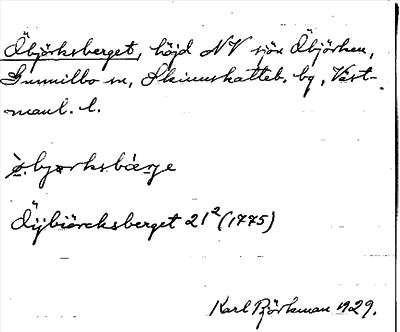 Öbjörksberget, höjd NV sjön Öbjörken,
Gunnilbo sn, Skinnskatteb. bg, Väst-
manl. l.
ø̀.bjørksbær̨je
Öijbiörcksberget 21² (1775)
Karl Björkman 1929.